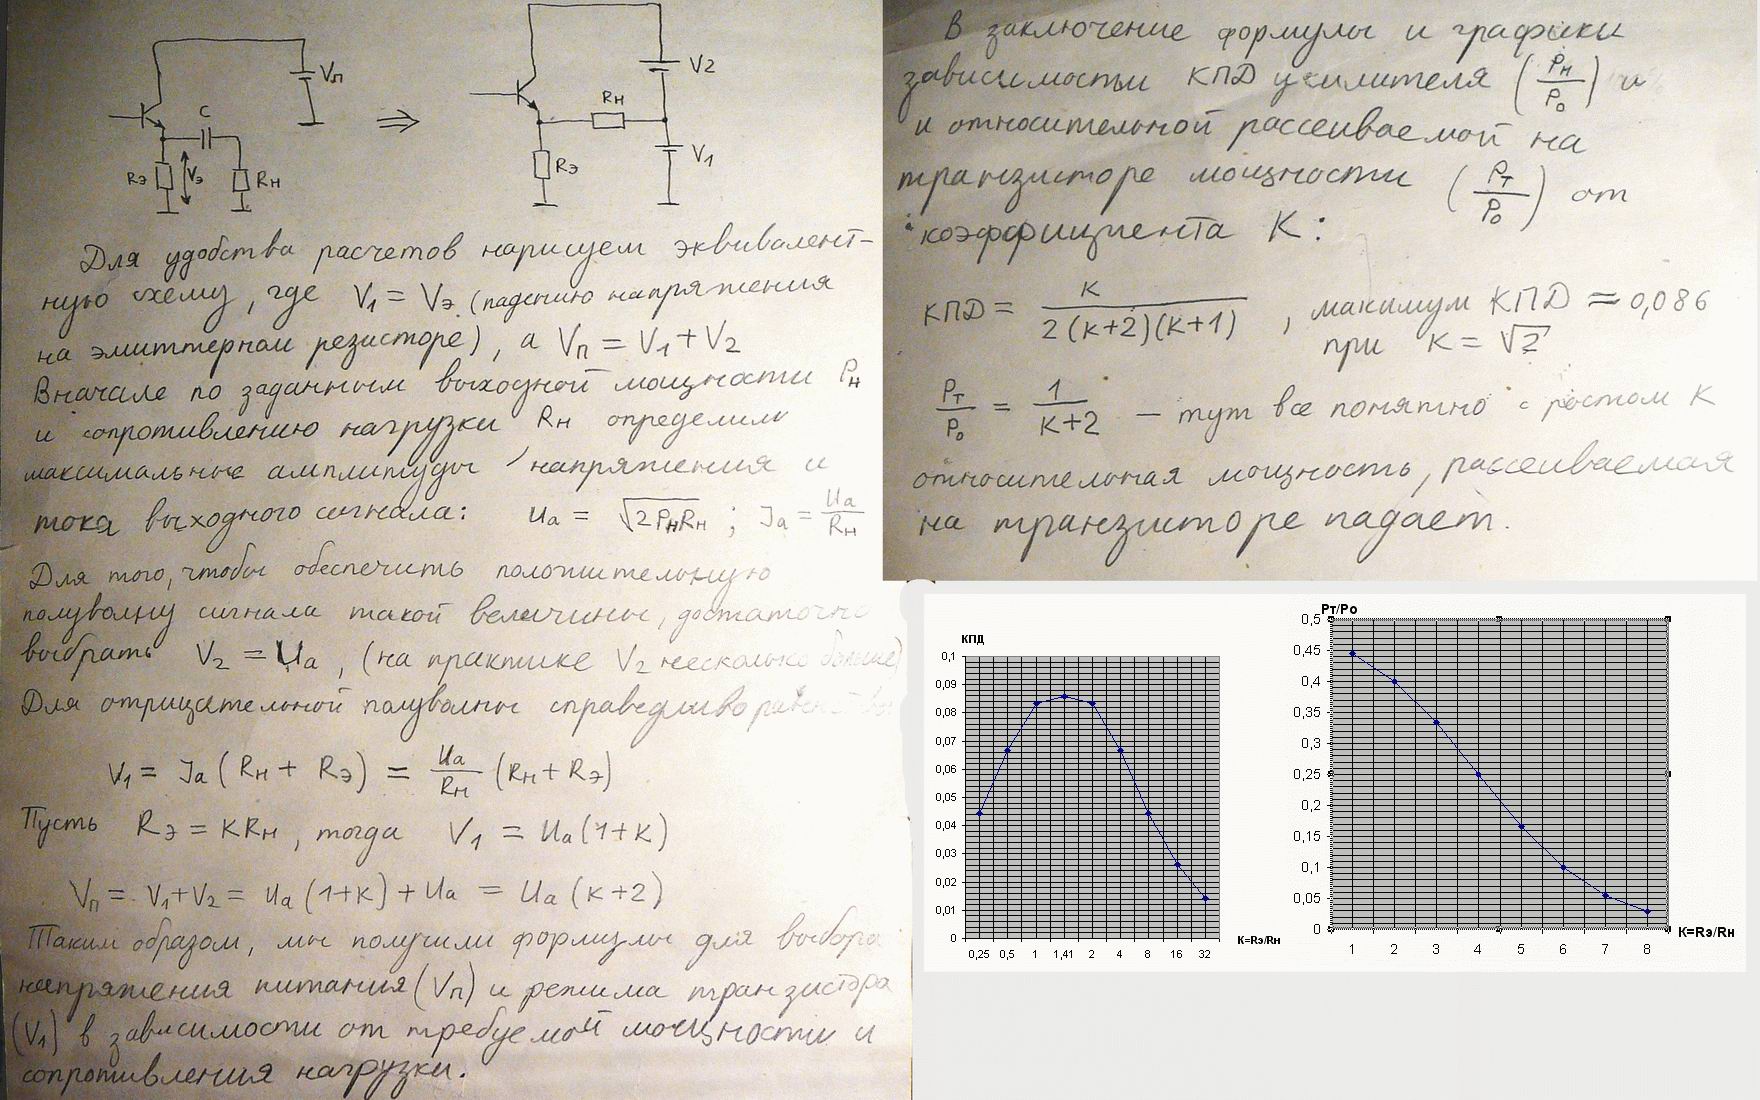 Vп
C
Rэ
Vэ
Rн
⇒
V2
Rн
V1
Rэ
Для удобства расчетов нарисуем эквивалент-
ную схему, где V1 = Vэ (падению напряжения
на эмиттерном резисторе), а Vп = V1 + V2
Вначале по заданным выходной мощности Pн
и сопротивлению нагрузки Rн определим
максимальные амплитуды напряжения и
тока выходного сигнала: Ua = √2PнRн ; Ja = Ua/Rн
Для того, чтобы обеспечить положительную
полуволну сигнала такой величины, достаточно
выбрать V2 = Ua, (на практике V2 несколько больше)
Для отрицательной полуволны справедливо
V1 = Ja (Rн + Rэ) = Ua/Rн (Rн + Rэ)
Пусть Rэ = KRн, тогда V1 = Ua(1+K)
Vп = V1+V2 = Ua (1+K) + Ua = Ua (K+2)
Таким образом, мы получили формулы для выбора
напряжения питания (Vп) и режима транзистора
(V1) в зависимости от требуемой мощности и
сопротивления нагрузки.
В заключение формулы и графики
зависимости КПД усилителя (Pн/Po) и
и относительной рассеиваемой на
транзисторе мощности (Pт/Po) от
коэффициента K:
КПД = K/2(K+2)(K+1) , максимум КПД ≈ 0,086
при K = √2
Pт/Po = 1/K+2 – тут все понятно с ростом K
относительная мощность, рассеиваемая
на транзисторе падает.
КПД
0,1
0,09
0,08
0,07
0,06
0,05
0,04
0,03
0,02
0,01
0
0,25 0,5 1 1,41 2 4 8 16 32
K=Rэ/Rн
Pт/Po
0,5
0,45
0,4
0,35
0,3
0,25
0,2
0,15
0,1
0,05
0
1 2 3 4 5 6 7 8
K=Rэ/Rн